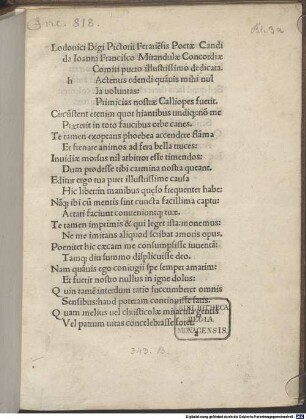 Inc. 818.
Lodouici Bigi Pictorii Ferariẽsis Poetæ Candi
da Ioanni Francisco Mirandulæ Concordiæ
Comiti puero illustissimo dedicata.
h Actenus edendi quãuis mihi nul
la voluntas:
Primicias nostræ Calliopes fuerit.
Circũstent etenim quor hiantibus undiq;
Præterit in toto faucibus orbe canes.
Te tamen exoptans phoebea accendere flãma
Et frenare animos ad fera bella truces:
Inuidiæ morsus nil arbitror esse timendos:
Dum prodesse tibi carmina nostra queant.
Editus ergo tua puer illustissime causa
Hic liber in manibus quęso frequenter habe:
Nãq; ibi cũ mentis sunt cuncta facillima captu:
Aetati faciunt conueniuntq; tuæ.
Te tamen imprimis & qui leget ista monemus:
Ne me imitans aliquid scribat amoris opus.
Poenitet hic cæcam me consumpsisse iuuentã:
Tamq; diu summo displicuisse deo.
Nam quãuis ego coniugii spe semper amarim:
Et fuerit nostro nullus in igne dolus:
Quin tamẽ interdum ratio succumberet omnis
Sensibus: haud poteram continuisse satis.
Quam melius uel christicolæ miracula gentis
Vel patrum uitas concelebrasse
BIBLIOTHECA
REGIA
MONACENSIS